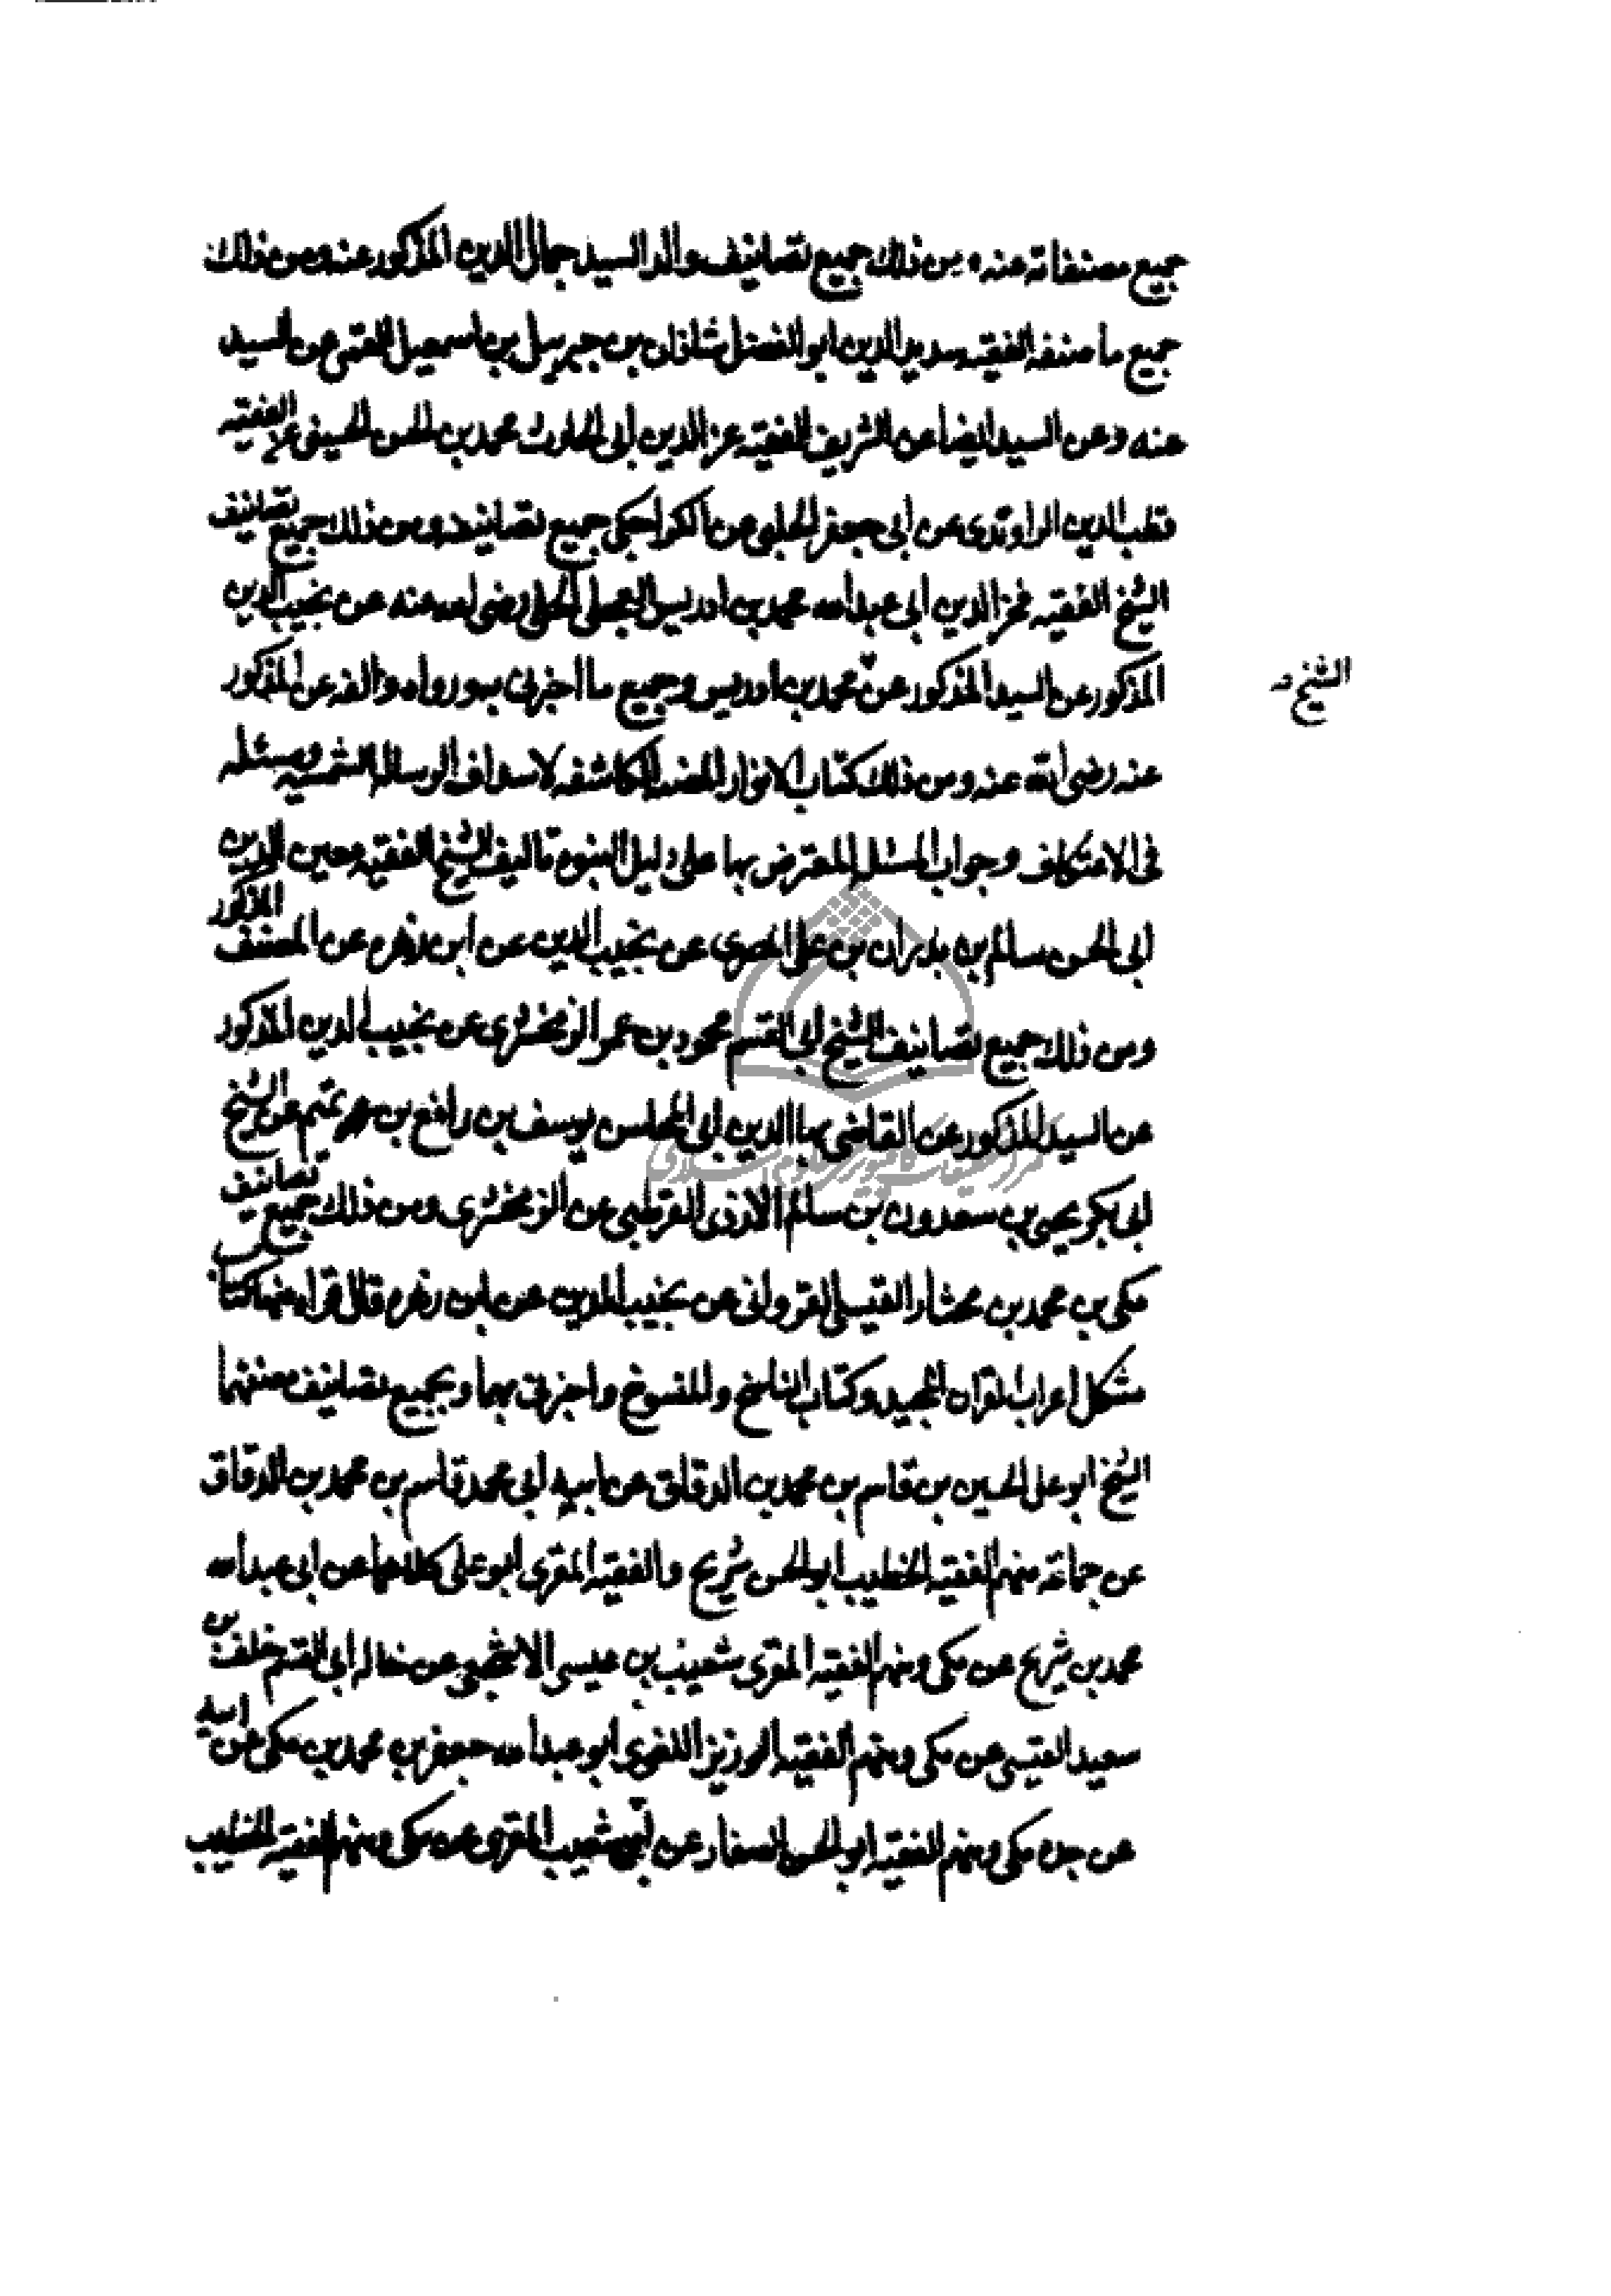 جميع مصنفاته عنه ومن ذلك جميع تصانيف والد السيد جمال الدين المذكور عنه ومن ذلك
جميع ما صنفه الفقيه سديد الدين ابو الفضل شاذان بن جبريل بن اسمعيل القمى عن السيد
عنه وعن السيد ايضا عن الشريف الفقيه عز الدين ابى الحارث محمد بن الحسن الحسينى عن الفقيه
قطب الدين الراوندى عن ابى جعفر الحلبى عن الكراجكى جميع تصانيفه ومن ذلك جميع تصانيف
الشيخ الفقيه فخر الدين ابى عبد الله محمد بن ادريس العجلى الحلى رضى الله عنه عن نجيب الدين
المذكور عن السيد المذكور عن محمد بن ادريس وجميع ما اخبرنى به ورواه والفه عن المذكور
الشيخ
عنه رضى الله عنه ومن ذلك كتاب الانوار المضيه الكاشفه لاسداف الرساله الشمسيه ومسئله
فى الاعتكاف وجواب المسئله المعترض بها على دليل النبوه تاليف الشيخ الفقيه معين الدين
ابى الحسن سالم بن بدران بن على المصرى عن نجيب الدين عن ابن زهره عن المصنف المذكور
ومن ذلك جميع تصانيف الشيخ ابى القسم محمود بن عمر الزمخشرى عن نجيب الدين المذكور
عن السيد المذكور عن القاضى بها الدين ابى المحاسن يوسف بن رافع بن تميم عن الشيخ
ابى بكر يحيى بن سعدون بن سالم الازدى القرطبى عن الزمخشرى ومن ذلك جميع تصانيف
مكى بن محمد بن محشار القيسى القروانى عن نجيب الدين عن ابن زهره قال قرات منها كتاب
مشكل اعراب القران المجيد وكتاب الناسخ والمنسوخ واخبرنى بهما وبجميع تصانيف مصنفهما
الشيخ ابو على الحسين بن قاسم بن محمد بن الدقاق عن ابيه ابى محمد قاسم بن محمد بن الدقاق
عن جماعة منهم الفقيه الخطيب ابو الحسن شريح والفقيه المقرى ابو على كلاهما عن ابى عبد الله
محمد بن شريح عن مكى ومنهم الفقيه المقرى شعيب بن عيسى الاشجعى عن خاله ابى القسم خلف بن
سعيد القيسى عن مكى ومنهم الفقيه الوزير اللغوى ابو عبد الله جعفر بن محمد بن مكى عن ابيه
عن جده مكى ومنهم الفقيه ابو الحسن الصفار عن شعيب المقرى عن مكى ومنهم الفقيه الخطيب